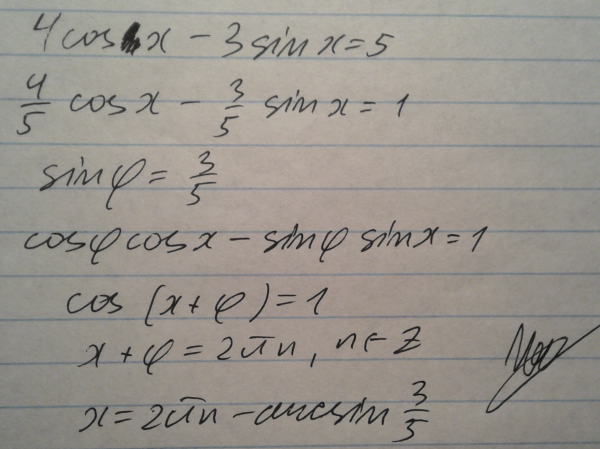 4cos x - 3 sin x = 5
4/5 cos x - 3/5 sin x = 1
sin φ = 3/5
cos φ cos x - sin φ sin x = 1
cos (x + φ) = 1
x + φ = 2πn, n ∈ Z
x = 2πn - arcsin 3/5